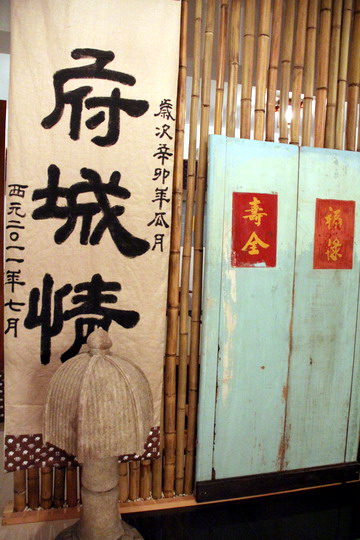 歲次辛卯年瓜月
府城情
西元二〇一一年七月
福祿
壽全